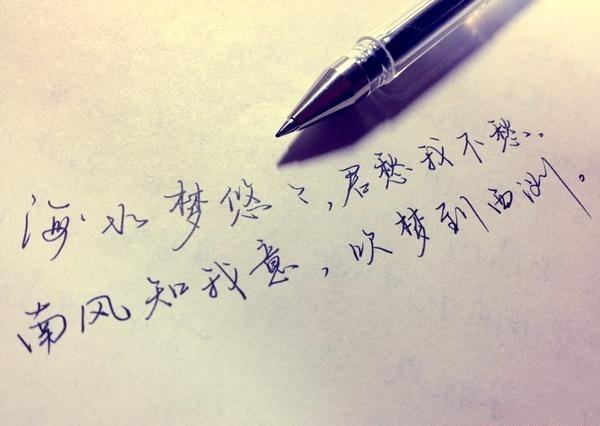 海水梦悠〻,君愁我不愁。
南风知我意,吹梦到西洲。